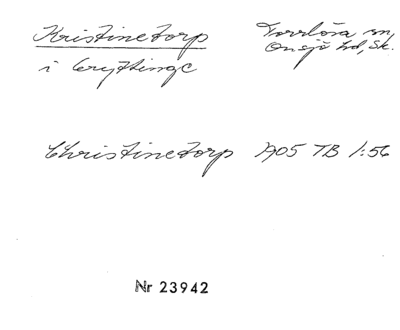 Kristinetorp
Torrlösa sn,
Onsjö hd, Sk.
i Gryttinge
Christinetorp 1905 TB 1:56
Nr 23942